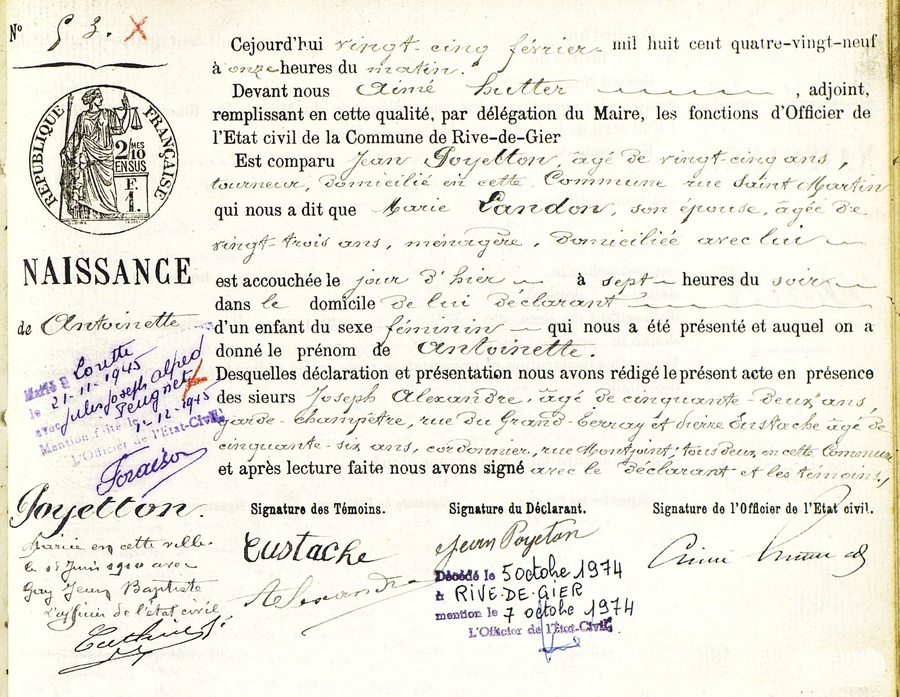 N° 53. X
RÉPUBLIQUE FRANÇAISE
2/10MES
EN SUS
F.
1.
NAISSANCE
de Antoinette
Marié à Lorette
le 21-11-1945
avec Jules Joseph Alfred
Peugnet
Mention faite le 9-12-1945
L'Officier de l'État-Civil,
Poyetton.
Mariée en cette ville
le 11 Juin 1910 avec
Guy Jean Baptiste
L'officier de l'état civil
Cejourd'hui vingt-cinq février mil huit cent quatre-vingt-neuf
à onze heures du matin.
Devant nous Aimé hutter, adjoint,
remplissant en cette qualité, par délégation du Maire, les fonctions d'Officier de
l'Etat civil de la Commune de Rive-de-Gier
Est comparu Jean Poyetton, âgé de vingt-cinq ans,
tourneur, domicilié en cette Commune rue Saint Martin
qui nous a dit que Marie Landon, son épouse, âgée de
vingt-trois ans, ménagère, domiciliée avec lui
est accouchée le jour d'hier à sept heures du soir
dans le domicile de lui déclarant
d'un enfant du sexe féminin qui nous a été présenté et auquel on a
donné le prénom de Antoinette.
Desquelles déclaration et présentation nous avons rédigé le présent acte en présence
des sieurs Joseph Alexandre, âgé de cinquante-deux ans,
garde-champêtre, rue du Grand-Cerray et Pierre Eustache âgé de
cinquante-six ans, cordonnier, rue Montjoint, tous deux en cette Commune
et après lecture faite nous avons signé avec le déclarant et les témoins,
Signature des Témoins. Signature du Déclarant. Signature de l'Officier de l'Etat civil.
Eustache Jean Poyeton
Alexandre
Décédé le 5 octobre 1974
à RIVE-DE-GIER
mention le 7 octobre 1974
L'Officier de l'État-Civil,